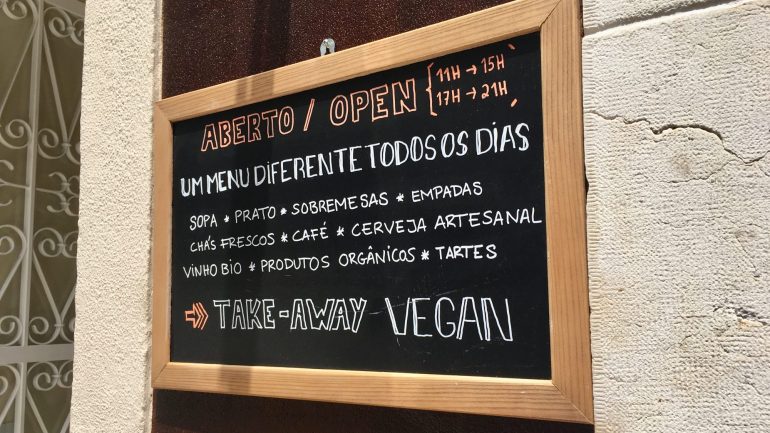 ABERTO / OPEN { 11H → 15H
17H → 21H
UM MENU DIFERENTE TODOS OS DIAS
SOPA * PRATO * SOBREMESAS * EMPADAS
CHÁS FRESCOS * CAFÉ * CERVEJA ARTESANAL
VINHO BIO * PRODUTOS ORGÂNICOS * TARTES
⇒ TAKE-AWAY VEGAN